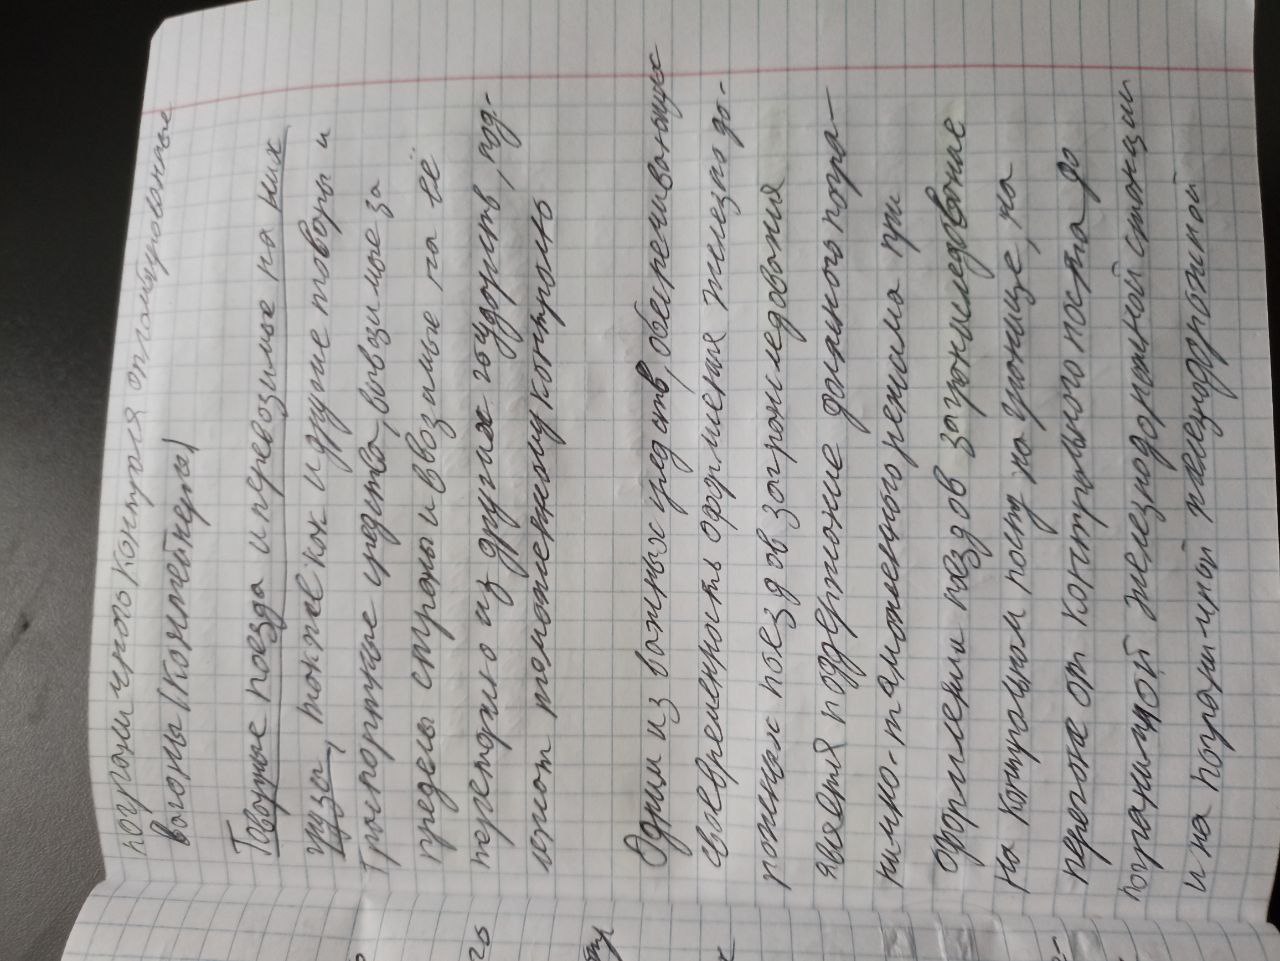 пограничного контроля опломбированные
вагоны (контейнеры)
Товарные поезда и перевозимые на них
грузы, также как и другие товары и
транспортные средства, вывозимые за
пределы страны и ввозимые на её
территорию из других государств, под-
лежат таможенному контролю
Одним из важных средств, обеспечивающих
своевременность оформления железнодо-
рожных поездов загранследования
является поддержание должного погра-
нично-таможенного режима при
оформлении поездов загранследование
на контрольном посту на границе, на
перегоне от контрольного поста до
пограничной железнодорожной станции
и на пограничной железнодорожной